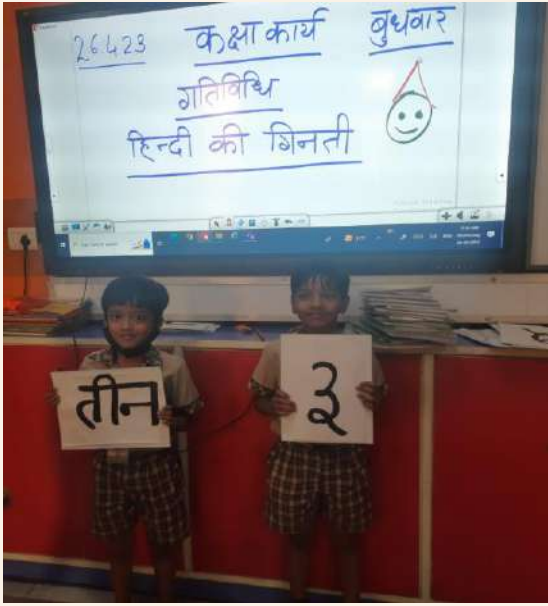 26.4.23 कक्षा कार्य बुधवार
गतिविधि
हिन्दी की गिनती
तीन
३